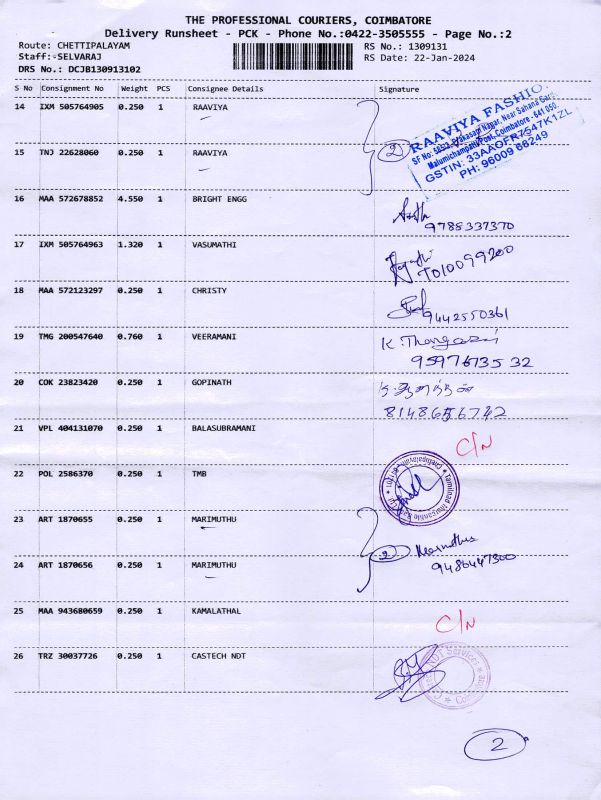 THE PROFESSIONAL COURIERS, COIMBATORE
Delivery Runsheet - PCK - Phone No.:0422-3505555 - Page No.:2
Route: CHETTIPALAYAM RS No.: 1309131
Staff: SELVARAJ RS Date: 22-Jan-2024
DRS No.: DCJB130913102
S No Consignment No Weight PCS Consignee Details Signature
14 IXM 505764905 0.250 1 RAAVIYA
RAAVIYA FASHIO
GSTIN: 33AAOFR7547K1ZL
PH: 96009 66249
2
15 TNJ 22628060 0.250 1 RAAVIYA
16 MAA 572678852 4.550 1 BRIGHT ENGG
9788337370
17 IXM 505764963 1.320 1 VASUMATHI
18 MAA 572123297 0.250 1 CHRISTY
9442550361
19 TMG 200547640 0.760 1 VEERAMANI
K. Thangamani
9597673532
20 COK 23823420 0.250 1 GOPINATH
8148656742
21 VPL 404131070 0.250 1 BALASUBRAMANI
C/N
22 POL 2586370 0.250 1 TMB
23 ART 1870655 0.250 1 MARIMUTHU
2 Marimuthu
9486447300
24 ART 1870656 0.250 1 MARIMUTHU
25 MAA 943680659 0.250 1 KAMALATHAL
C/N
26 TRZ 30037726 0.250 1 CASTECH NDT
2